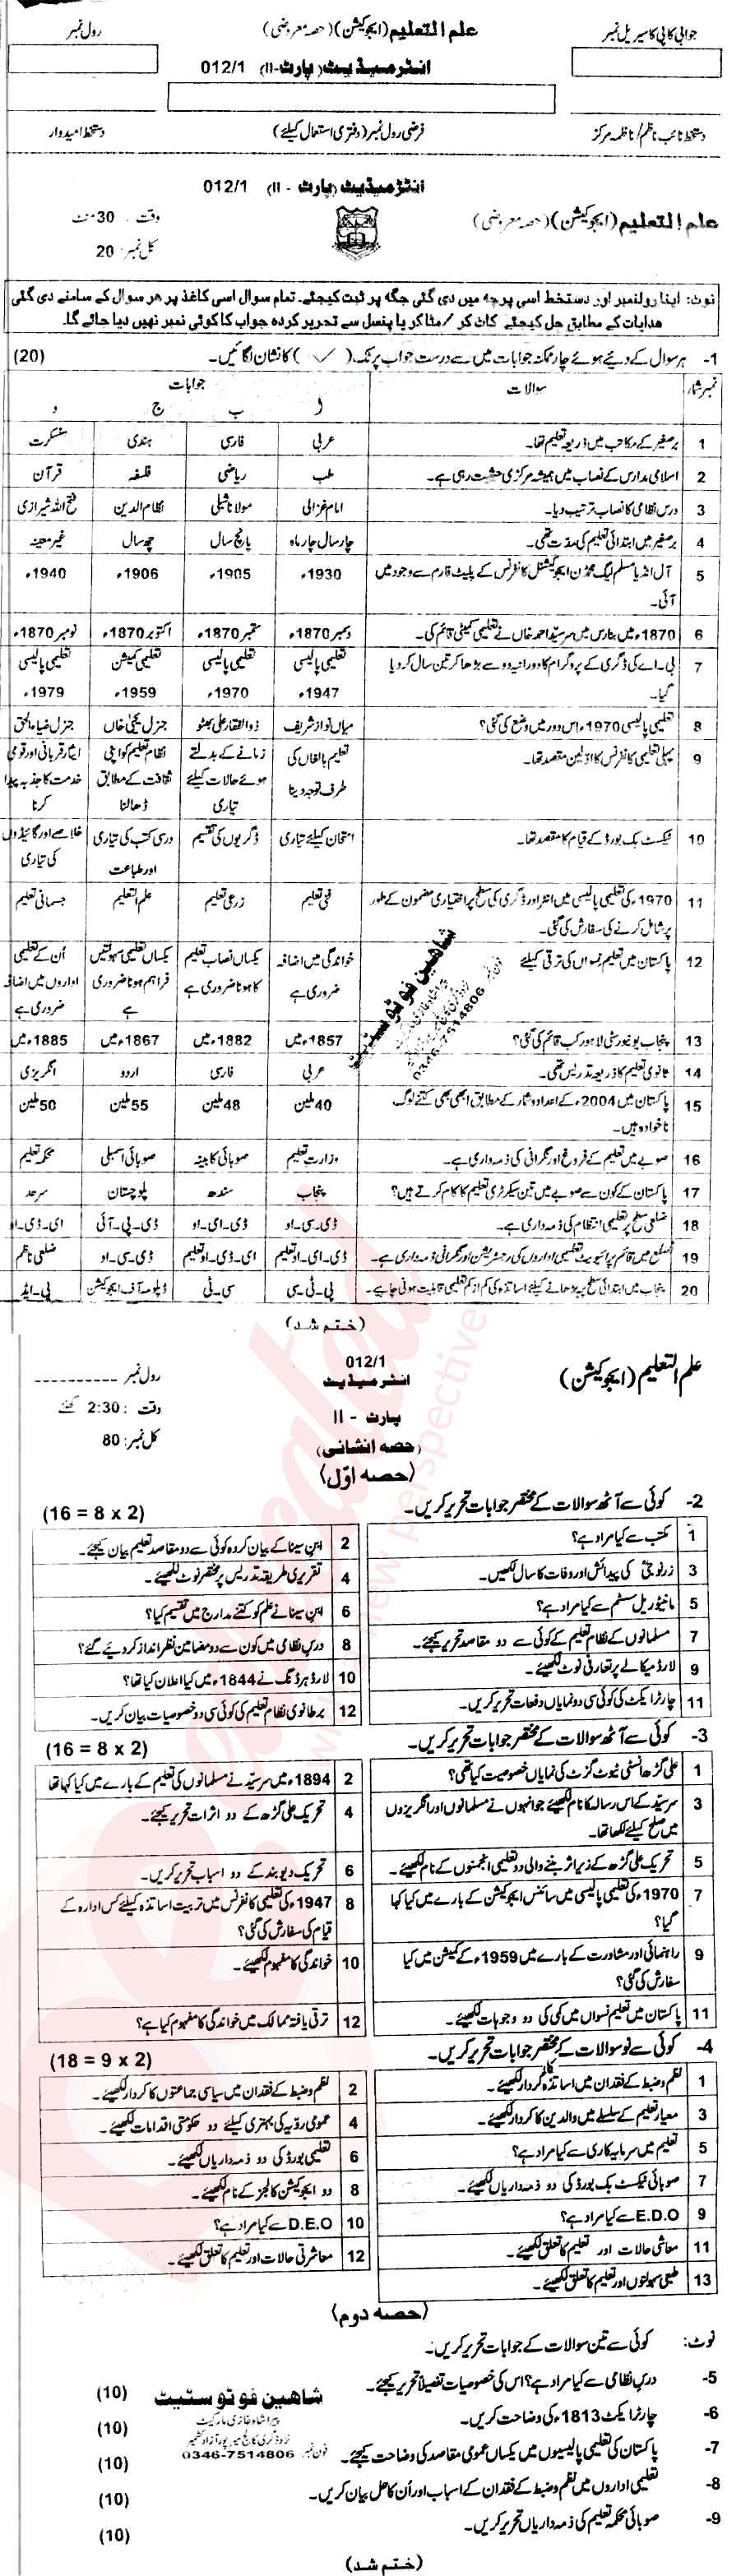 جوابی کاپی کا سیریل نمبر
علم التعلیم (ایجوکیشن) (حصہ معروضی)
رول نمبر
انٹرمیڈیٹ (پارٹ-II) 012/1
دستخط نائب ناظم/ناظمہ مرکز
فرضی رول نمبر (دفتری استعمال کیلئے)
دستخط امیدوار
انٹرمیڈیٹ (پارٹ - II) 012/1
علم التعلیم (ایجوکیشن) (حصہ معروضی)
وقت: 30 منٹ
کل نمبر: 20
نوٹ: اپنا رولنمبر اور دستخط اسی پرچہ میں دی گئی جگہ پر ثبت کیجئے۔ تمام سوال اسی کاغذ پر ہر سوال کے سامنے دی گئی
ہدایات کے مطابق حل کیجئے۔ کاٹ کر/مٹا کر یا پنسل سے تحریر کردہ جواب کا کوئی نمبر نہیں دیا جائے گا۔
1- ہر سوال کے دئیے ہوئے چار ممکنہ جوابات میں سے درست جواب پر ٹک (✓) کا نشان لگائیں۔ (20)
نمبر شمار سوالات جوابات
ا ب ج د
1 برصغیر کے مکاتب میں ذریعہ تعلیم تھا۔ عربی فارسی ہندی سنسکرت
2 اسلامی مدارس کے نصاب میں ہمیشہ مرکزی حیثیت رہی ہے۔ طب ریاضی فلسفہ قرآن
3 درس نظامی کا نصاب ترتیب دیا۔ امام غزالی مولانا شبلی نظام الدین فتح اللہ شیرازی
4 برصغیر میں ابتدائی تعلیم کی مدت تھی۔ چار سال چار ماہ پانچ سال چھ سال غیر معینہ
5 آل انڈیا مسلم لیگ محمڈن ایجوکیشنل کانفرنس کے پلیٹ فارم سے وجود میں آئی۔ 1930ء 1905ء 1906ء 1940ء
6 1870ء میں بنارس میں سرسید احمد خاں نے تعلیمی کمیٹی قائم کی۔ دسمبر 1870ء ستمبر 1870ء اکتوبر 1870ء نومبر 1870ء
7 بی۔اے کی ڈگری کے پروگرام کا دورانیہ دو سے بڑھا کر تین سال کر دیا گیا۔ تعلیمی پالیسی 1947ء تعلیمی پالیسی 1970ء تعلیمی کمیشن 1959ء تعلیمی پالیسی 1979ء
8 تعلیمی پالیسی 1970ء اس دور میں وضع کی گئی؟ میاں نواز شریف ذوالفقار علی بھٹو جنرل یحییٰ خاں جنرل ضیاء الحق
9 پہلی تعلیمی کانفرنس کا اولین مقصد تھا۔ تعلیم بالغاں کی طرف توجہ دینا زمانے کے بدلتے ہوئے حالات کیلئے تیاری نظام تعلیم کو اپنی ثقافت کے مطابق ڈھالنا ایثار قربانی اور قومی خدمت کا جذبہ پیدا کرنا
10 ٹیکسٹ بک بورڈ کے قیام کا مقصد تھا۔ امتحان کیلئے تیاری ڈگریوں کی تقسیم درسی کتب کی تیاری اور طباعت خلاصے اور گائیڈوں کی تیاری
11 1970ء کی تعلیمی پالیسی میں انٹر اور ڈگری کی سطح پر اختیاری مضمون کے طور پر شامل کرنے کی سفارش کی گئی۔ فنی تعلیم زرعی تعلیم علم التعلیم جسمانی تعلیم
12 پاکستان میں تعلیم نسواں کی ترقی کیلئے خواندگی میں اضافہ ضروری ہے یکساں نصاب تعلیم کا ہونا ضروری ہے یکساں تعلیمی سہولتیں فراہم ہونا ضروری ہے اُن کے تعلیمی اداروں میں اضافہ ضروری ہے
13 پنجاب یونیورسٹی لاہور کب قائم کی گئی؟ 1857ء میں 1882ء میں 1867ء میں 1885ء میں
14 ثانوی تعلیم کا ذریعہ تدریس تھی۔ عربی فارسی اردو انگریزی
15 پاکستان میں 2004ء کے اعداد و شمار کے مطابق ابھی بھی کتنے لوگ ناخواندہ ہیں۔ 40 ملین 48 ملین 55 ملین 50 ملین
16 صوبے میں تعلیم کے فروغ اور نگرانی کی ذمہ داری ہے۔ وزارت تعلیم صوبائی کابینہ صوبائی اسمبلی محکمہ تعلیم
17 پاکستان کے کون سے صوبے میں تین سیکرٹری تعلیم کا کام کرتے ہیں؟ پنجاب سندھ بلوچستان سرحد
18 ضلعی سطح پر تعلیمی انتظام کی ذمہ داری ہے۔ ڈی۔سی۔او ڈی۔ای۔او ڈی۔پی۔آئی ای۔ڈی۔او
19 ضلع میں قائم پرائیویٹ تعلیمی اداروں کی رجسٹریشن اور نگرانی ذمہ داری ہے۔ ڈی۔ای۔او تعلیم ای۔ڈی۔او تعلیم ڈی۔سی۔او ضلعی ناظم
20 پنجاب میں ابتدائی سطح پر پڑھانے کیلئے اساتذہ کی کم از کم تعلیمی قابلیت ہونی چاہیے۔ پی۔ٹی۔سی سی۔ٹی ڈپلومہ آف ایجوکیشن بی۔ایڈ
(ختم شد)
شاہین فوٹوسٹیٹ
فون نمبر 0346-7514806
علم التعلیم (ایجوکیشن)
012/1
انٹرمیڈیٹ
پارٹ - II
(حصہ انشائی)
رول نمبر ----------
وقت: 2:30 گھنٹے
کل نمبر: 80
(حصہ اوّل)
2- کوئی سے آٹھ سوالات کے مختصر جوابات تحریر کریں۔ (16 = 8 x 2)
1 مکتب سے کیا مراد ہے؟
2 ابن سینا کے بیان کردہ کوئی سے دو مقاصد تعلیم بیان کیجئے۔
3 زرنوجیؒ کی پیدائش اور وفات کا سال لکھیں۔
4 تقریری طریقہ تدریس پر مختصر نوٹ لکھیئے۔
5 مانیٹوریل سسٹم سے کیا مراد ہے؟
6 ابن سینا نے علم کو کتنے مدارج میں تقسیم کیا؟
7 مسلمانوں کے نظام تعلیم کے کوئی سے دو مقاصد تحریر کیجئے۔
8 درس نظامی میں کون سے دو مضامین نظر انداز کر دیئے گئے؟
9 لارڈ میکالے پر تعارفی نوٹ لکھیئے۔
10 لارڈ ہارڈنگ نے 1844ء میں کیا اعلان کیا تھا؟
11 چارٹر ایکٹ کی کوئی سی دو نمایاں دفعات تحریر کریں۔
12 برطانوی نظام تعلیم کی کوئی سی دو خصوصیات بیان کریں۔
3- کوئی سے آٹھ سوالات کے مختصر جوابات تحریر کریں۔ (16 = 8 x 2)
1 علی گڑھ انسٹی ٹیوٹ گزٹ کی نمایاں خصوصیت کیا تھی؟
2 1894ء میں سرسید نے مسلمانوں کی تعلیم کے بارے میں کیا کہا تھا
3 سرسید کے اس رسالہ کا نام لکھیئے جو انہوں نے مسلمانوں اور انگریزوں میں صلح کیلئے لکھا تھا۔
4 تحریک علی گڑھ کے دو اثرات تحریر کیجئے۔
5 تحریک علی گڑھ کے زیر اثر بننے والی دو تعلیمی انجمنوں کے نام لکھیئے۔
6 تحریک دیوبند کے دو اسباب تحریر کریں۔
7 1970ء کی تعلیمی پالیسی میں سائنس ایجوکیشن کے بارے میں کیا کہا گیا؟
8 1947ء کی تعلیمی کانفرنس میں تربیت اساتذہ کیلئے کس ادارہ کے قیام کی سفارش کی گئی؟
9 راہنمائی اور مشاورت کے بارے میں 1959ء کے کمیشن میں کیا سفارش کی گئی؟
10 خواندگی کا مفہوم لکھیئے۔
11 پاکستان میں تعلیم نسواں میں کمی کی دو وجوہات لکھیئے۔
12 ترقی یافتہ ممالک میں خواندگی کا مفہوم کیا ہے؟
4- کوئی سے نو سوالات کے مختصر جوابات تحریر کریں۔ (18 = 9 x 2)
1 نظم و ضبط کے فقدان میں اساتذہ کا کردار لکھیئے۔
2 نظم و ضبط کے فقدان میں سیاسی جماعتوں کا کردار لکھیئے۔
3 معیار تعلیم کے سلسلے میں والدین کا کردار لکھیئے۔
4 عمومی رویہ کی بہتری کیلئے دو حکومتی اقدامات لکھیئے۔
5 تعلیم میں سرمایہ کاری سے کیا مراد ہے؟
6 تعلیمی بورڈ کی دو ذمہ داریاں لکھیئے۔
7 صوبائی ٹیکسٹ بک بورڈ کی دو ذمہ داریاں لکھیئے۔
8 دو ایجوکیشن کالجز کے نام لکھیئے۔
9 E.D.O سے کیا مراد ہے؟
10 D.E.O سے کیا مراد ہے؟
11 معاشی حالات اور تعلیم کا تعلق لکھیئے۔
12 معاشرتی حالات اور تعلیم کا تعلق لکھیئے۔
13 طبعی سہولتوں اور تعلیم کا تعلق لکھیئے۔
(حصہ دوم)
نوٹ: کوئی سے تین سوالات کے جوابات تحریر کریں۔
5- درس نظامی سے کیا مراد ہے؟ اس کی خصوصیات تفصیلاً تحریر کیجئے۔ (10)
6- چارٹر ایکٹ 1813ء کی وضاحت کریں۔ (10)
7- پاکستان کی تعلیمی پالیسیوں میں یکساں عمومی مقاصد کی وضاحت کیجئے۔ (10)
8- تعلیمی اداروں میں نظم و ضبط کے فقدان کے اسباب اور اُن کا حل بیان کریں۔ (10)
9- صوبائی محکمہ تعلیم کی ذمہ داریاں تحریر کریں۔ (10)
شاہین فوٹوسٹیٹ
پیرا شاہ غازی مارکیٹ
نزد ڈگری کالج میرپور آزاد کشمیر
فون نمبر 0346-7514806
(ختم شد)
new perspective